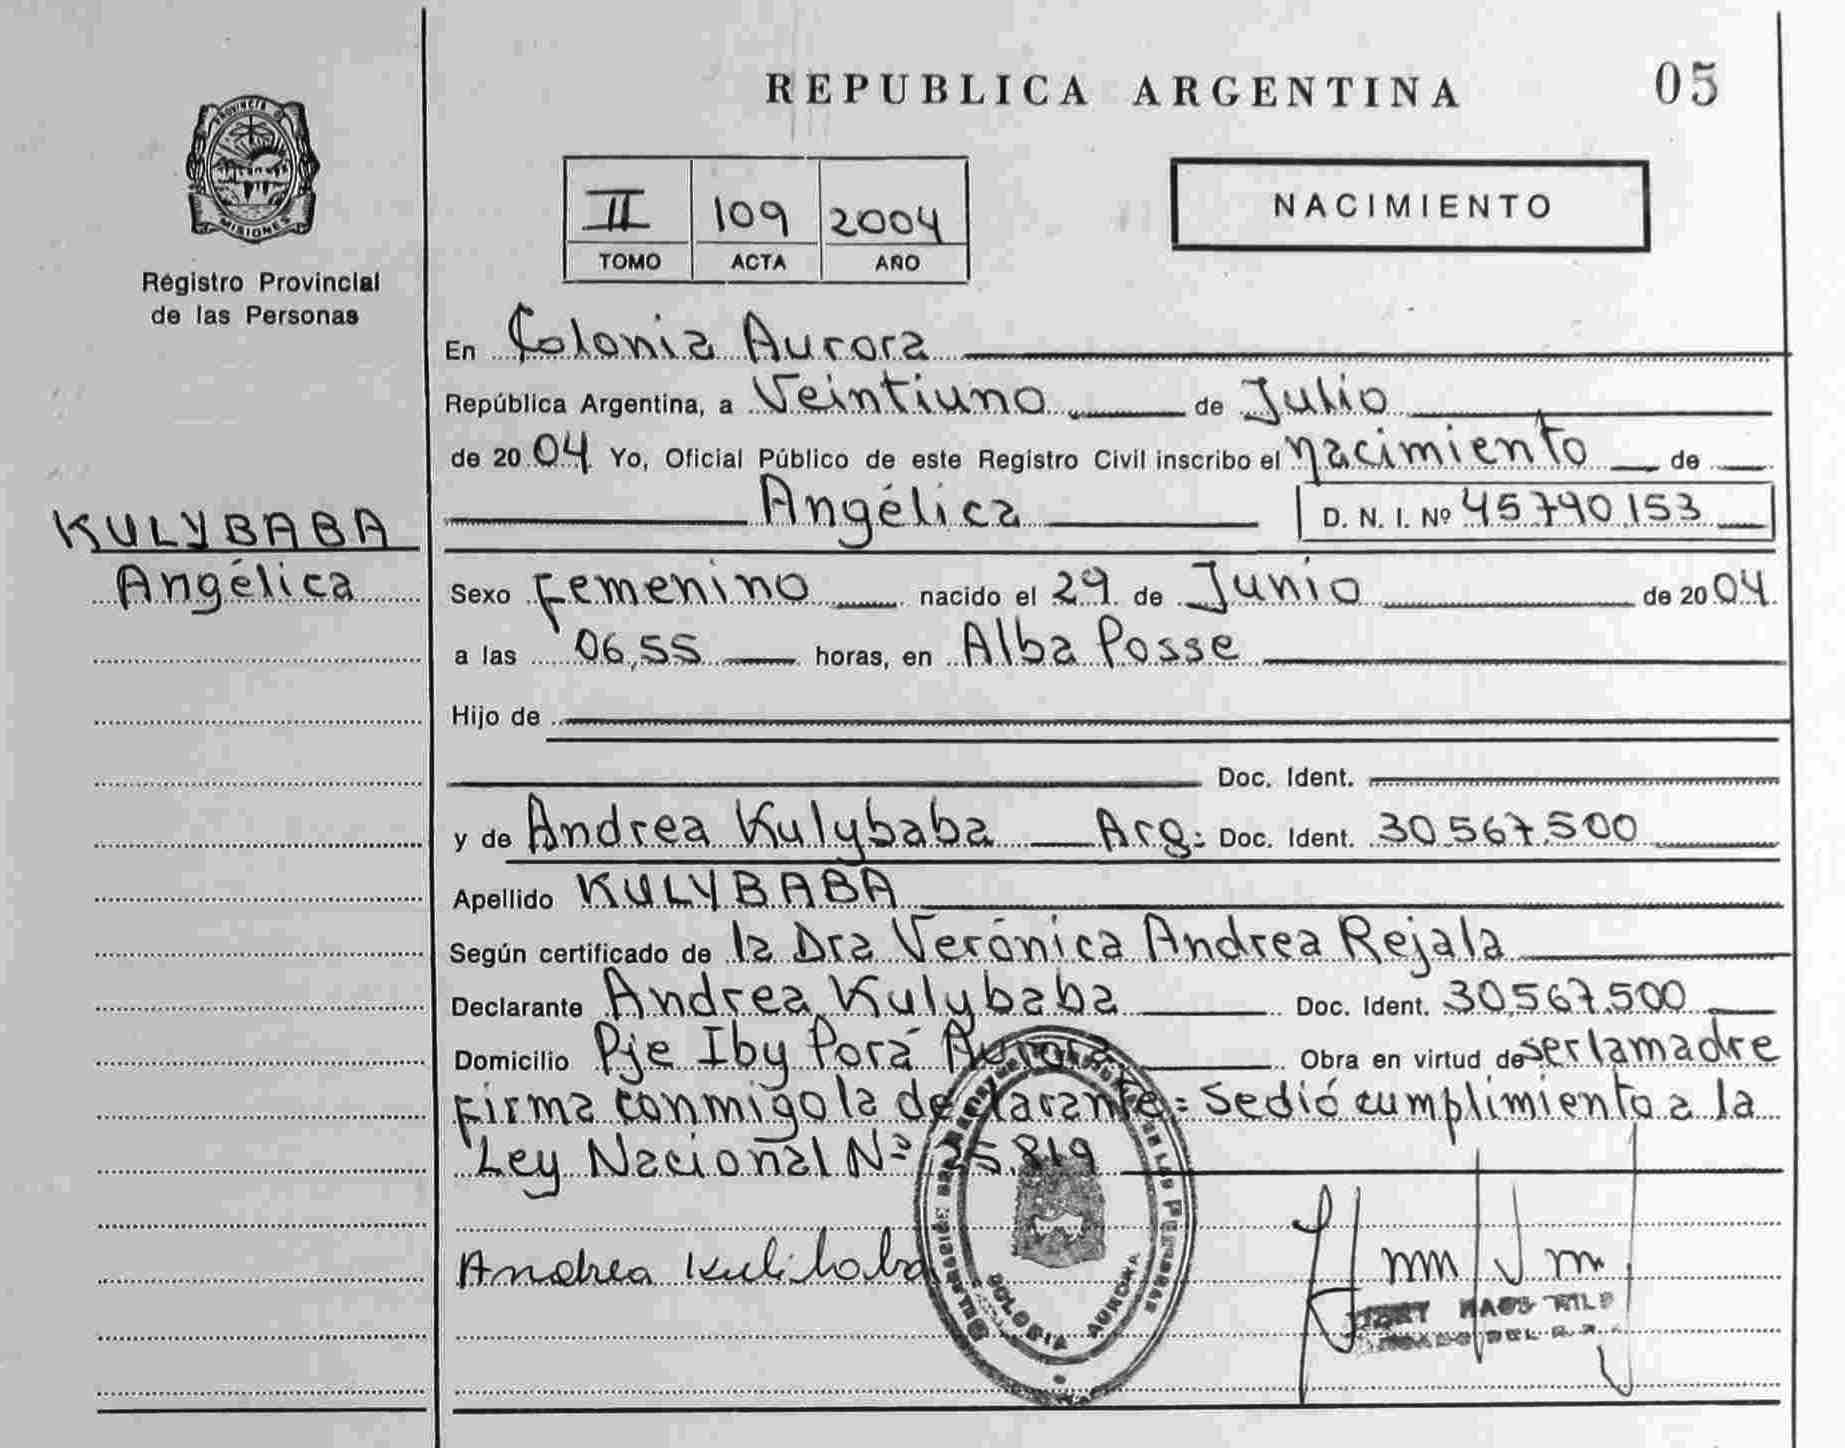 REPUBLICA ARGENTINA
05
PROVINCIA DE
MISIONES
Registro Provincial
de las Personas
II 109 2004
TOMO ACTA AÑO
NACIMIENTO
En Colonia Aurora
República Argentina, a Veintiuno de Julio
de 2004 Yo, Oficial Público de este Registro Civil inscribo el nacimiento de
Angélica D. N. I. Nº 45.790.153
KULYBABA
Angélica
Sexo Femenino nacido el 29 de Junio de 2004
a las 06,55 horas, en Alba Posse
Hijo de
Doc. Ident.
y de Andrea Kulybaba Arg: Doc. Ident. 30.567.500
Apellido KULYBABA
Según certificado de la Dra Verónica Andrea Rejala
Declarante Andrea Kulybaba Doc. Ident. 30.567.500
Domicilio Pje Iby Porá Aurora Obra en virtud de ser la madre
firma conmigo la declarante = Se dió cumplimiento a la
Ley Nacional Nº 25.819
Andrea Kulibaba
COLONIA AURORA